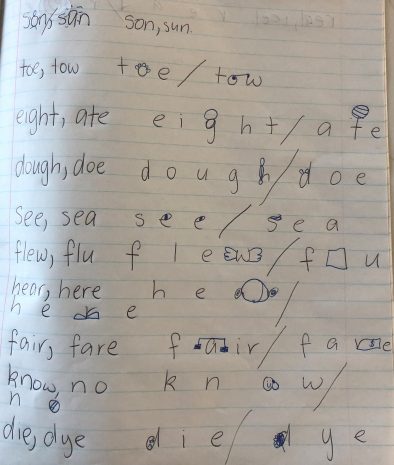 son, sun son, sun.
toe, tow toe/tow
eight, ate eight/ate
dough, doe dough/doe
see, sea see/sea
flew, flu flew/flu
hear, here hear/
here
fair, fare fair/fare
know, no know/
no
die, dye die/dye